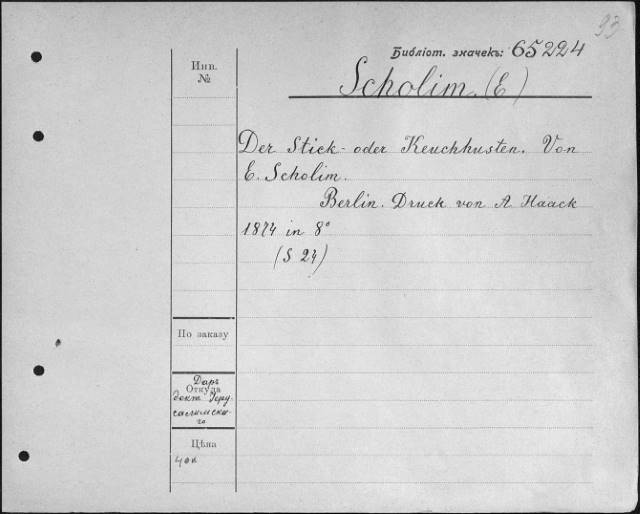 93
Библіот. значекъ: 65224
Scholim. (E)
Инв.
№
Der Stick- oder Keuchhusten. Von
E. Scholim.
Berlin. Druck von A. Haack
1874 in 8°
(S 24)
По заказу
Откуда
Даръ
докт. Іеру-
салимска-
го
Цѣна
40к